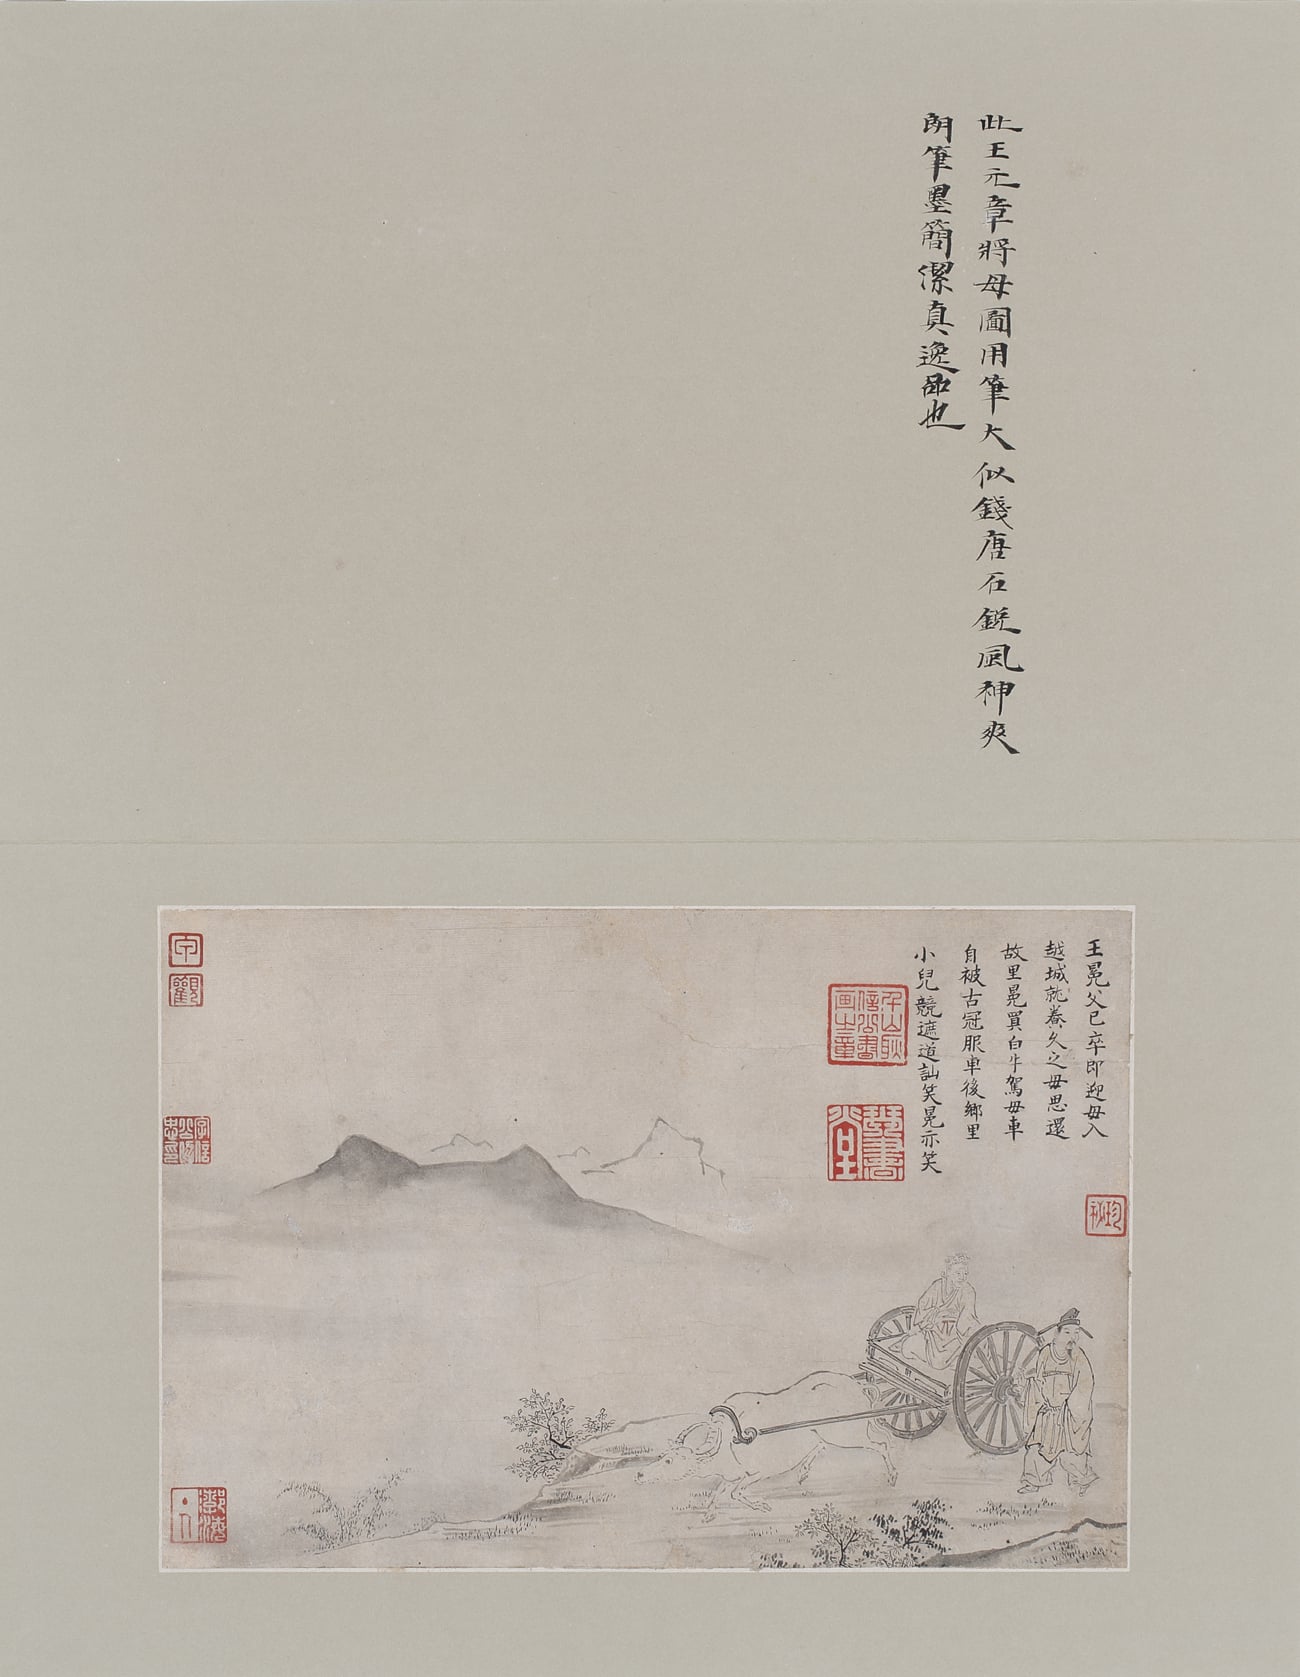 此王元章將母圖用筆大似錢唐石銳風神爽
朗筆墨簡潔真逸品也
王冕父已卒即迎母入
越城就養久之母思還
故里冕買白牛駕母車
自被古冠服車後鄉里
小兒競遮道訕笑冕亦笑
千山耿
信公書
画之章
琴書
堂
珍
祕
宜
觀